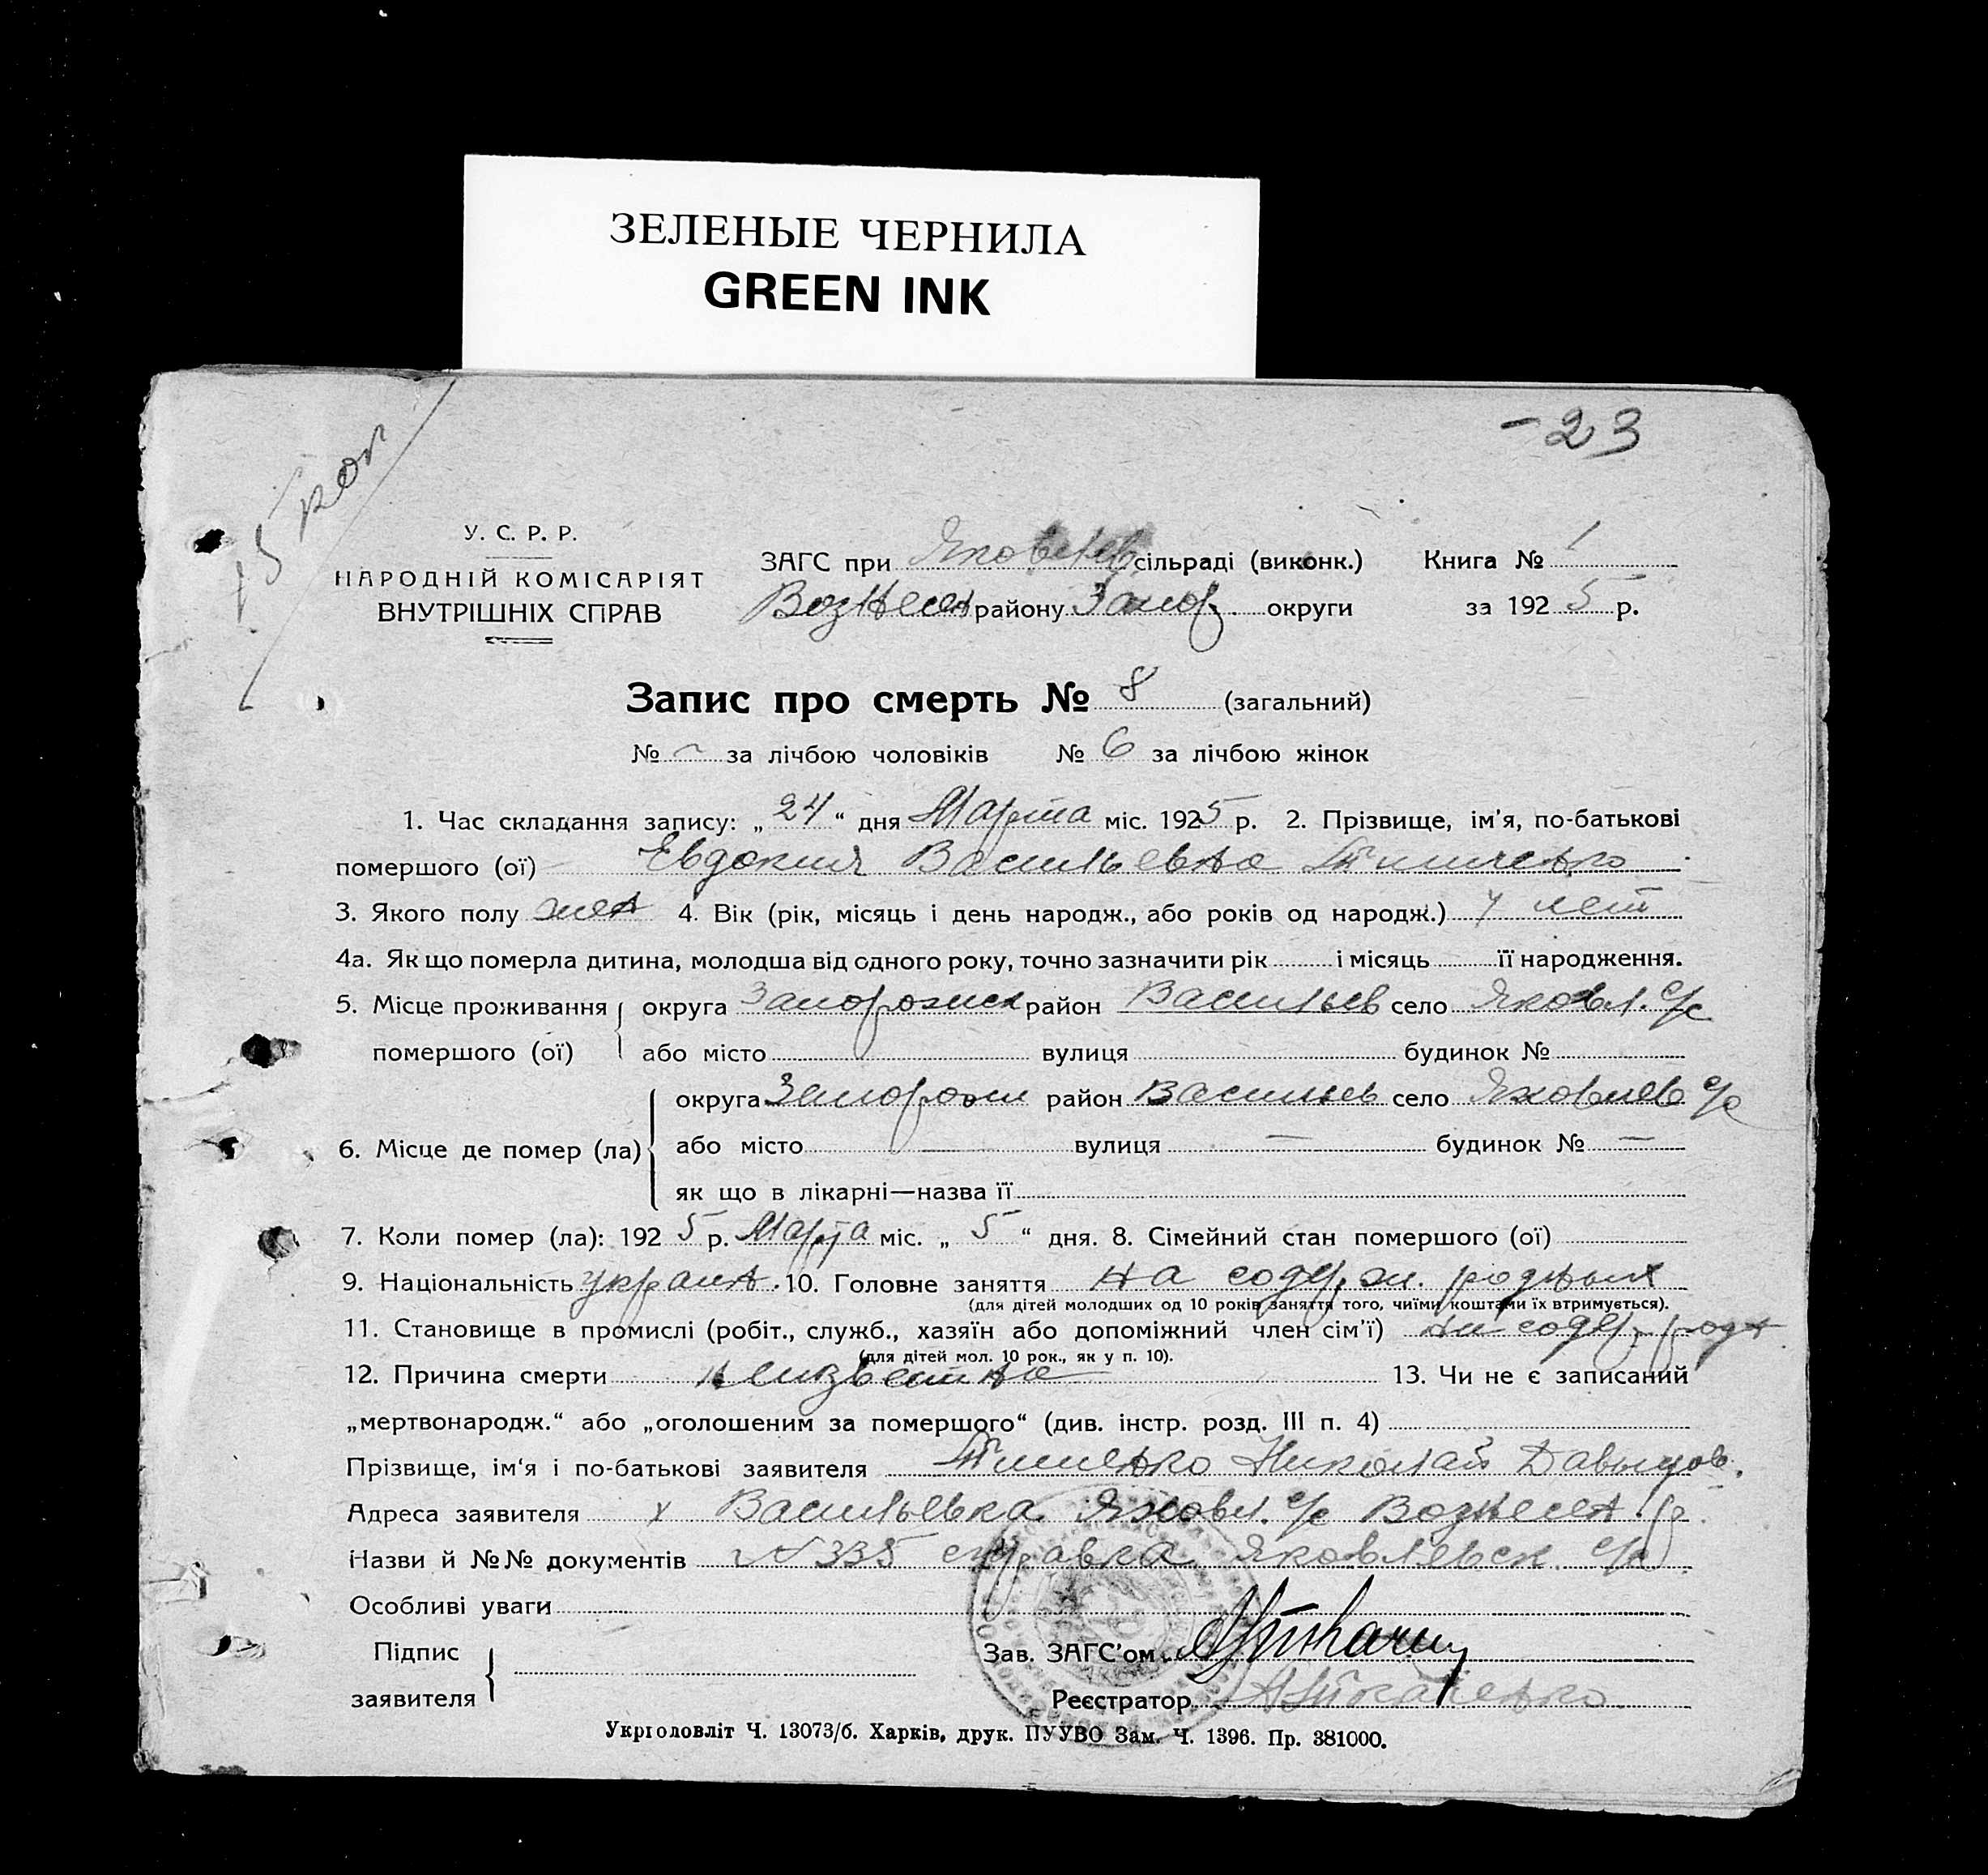 ЗЕЛЕНЫЕ ЧЕРНИЛА
GREEN INK
-23
15 коп
У. С. Р. Р.
НАРОДНІЙ КОМІСАРІЯТ
ВНУТРІШНІХ СПРАВ
ЗАГС при Яковлев сільраді (виконк.) Книга № 1
Вознесен району Запор. округи за 1925 р.
Запис про смерть № 8 (загальний)
№ - за лічбою чоловіків № 6 за лічбою жінок
1. Час складання запису: „24“ дня Марта міс. 1925 р. 2. Прізвище, ім'я, по-батькові
помершого (ої) Евдокия Васильевна Тимченко
3. Якого полу жен 4. Вік (рік, місяць і день народж., або років од народж.) 4 лет
4а. Як що померла дитина, молодша від одного року, точно зазначити рік і місяць її народження.
5. Місце проживання округа Запорожск район Васильев село Яковл. с/с
помершого (ої) або місто вулиця будинок №
округа Запорож район Васильев село Яковлев с/с
6. Місце де помер (ла) або місто — вулиця — будинок № —
як що в лікарні—назва її
7. Коли помер (ла): 1925 р. Марта міс. „5“ дня. 8. Сімейний стан помершого (ої)
9. Національність украин. 10. Головне заняття на содерж. родных
(для дітей молодших од 10 років заняття того, чиїми коштами їх втримується).
11. Становище в промислі (робіт., служб., хазяїн або допоміжний член сім'ї) на содер. родн
(для дітей мол. 10 рок., як у п. 10).
12. Причина смерти неизвестна 13. Чи не є записаний
„мертвонародж.“ або „оголошеним за помершого“ (див. інстр. розд. III п. 4)
Прізвище, ім'я і по-батькові заявителя Николай Давыдов.
Адреса заявителя х Васильевка Яковл. с/с Вознесен р.
Назви й №№ документів № 335 справка Яковлевск. с/с
Особливі уваги
Підпис
заявителя
Зав. ЗАГС'ом
Реєстратор
Укрголовліт Ч. 13073/б. Харків, друк. ПУУВО Зам. Ч. 1396. Пр. 381000.